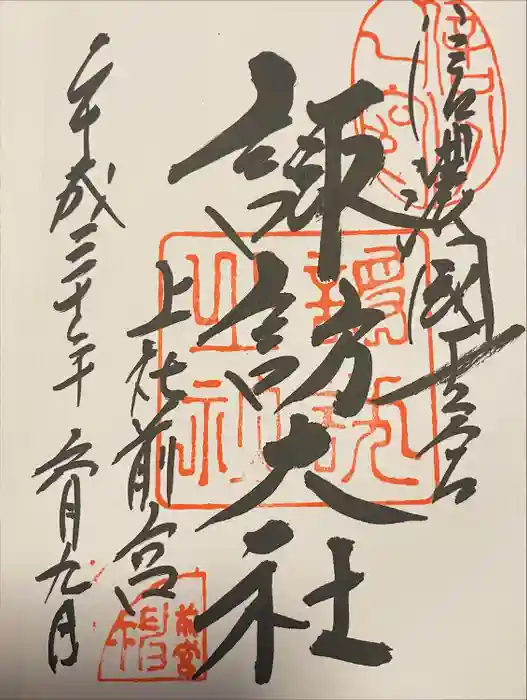 信濃國一之宮
諏訪大社
上社前宮
平成二十七年 六月九日
前宮